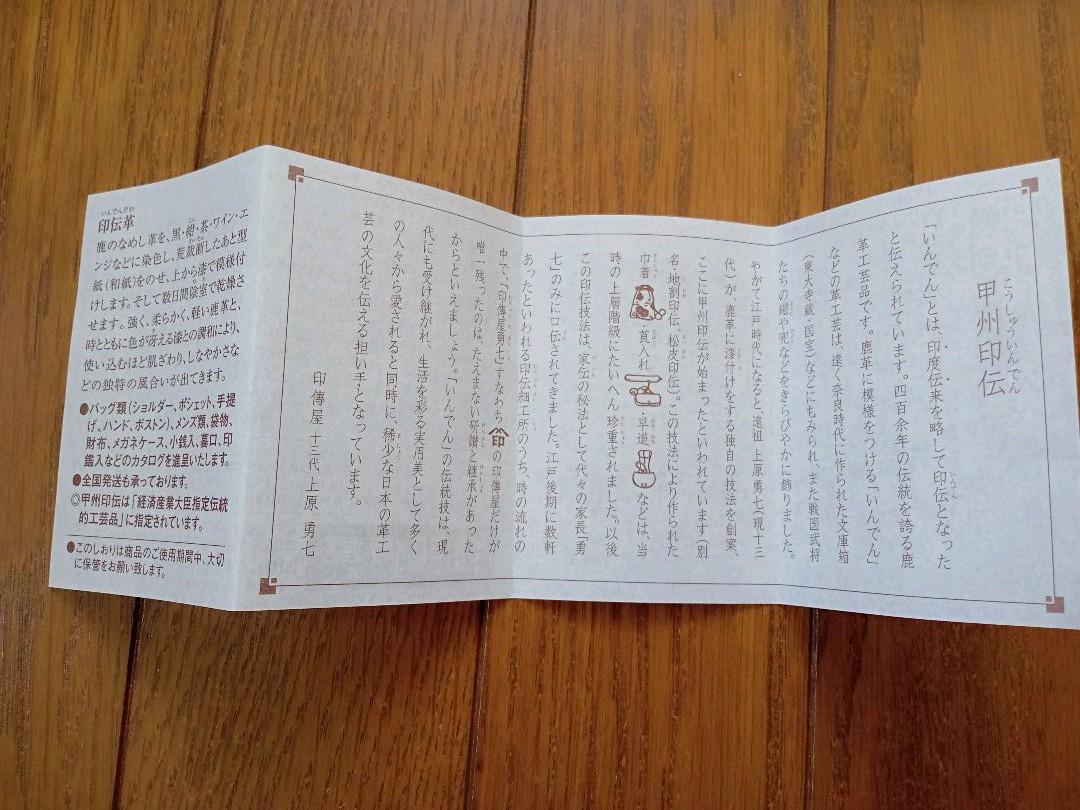 こうしゅういんでん
甲州印伝
「いんでん」とは、印度伝来を略して印伝となった
と伝えられています。四百余年の伝統を誇る鹿
革工芸品です。鹿革に模様をつける「いんでん」
などの革工芸は、遠く奈良時代に作られた文庫箱
(東大寺蔵・国宝)などにもみられ、また戦国武将
たちの鎧や兜などをきらびやかに飾りました。
やがて江戸時代になると、遠祖 上原勇七(現十三
代)が、鹿革に漆付けをする独自の技法を創案、
ここに甲州印伝が始まったといわれています(別
名・地割印伝、松皮印伝)。この技法により作られた
巾着 莨入れ 早道 などは、当
時の上層階級にたいへん珍重されました。以後
この印伝技法は、家伝の秘法として代々の家長「勇
七」のみに口伝されてきました。江戸後期に数軒
あったといわれる印伝細工所のうち、時の流れの
中で、「印傳屋勇七」すなわち の印傳屋だけが
唯一残ったのは、たえまない研鑽と継承があった
からといえましょう。「いんでん」の伝統技は、現
代にも受け継がれ、生活を彩る実用美として多く
の人々から愛されると同時に、稀少な日本の革工
芸の文化を伝える担い手となっています。
印傳屋 十三代 上原 勇七
いんでんがわ
印伝革
鹿のなめし革を、黒・紺・茶・ワイン・エ
ンジなどに染色し、荒裁断したあと型
紙(和紙)をのせ、上から漆で模様付
けします。そして数日間陰室で乾燥さ
せます。強く、柔らかく、軽い鹿革と、
時とともに色が冴える漆との調和により、
使い込むほど肌ざわり、しなやかさな
どの独特の風合いが出てきます。
●バッグ類(ショルダー、ポシェット、手提
げ、ハンド、ボストン)、メンズ類、袋物、
財布、メガネケース、小銭入、蟇口、印
鑑入などのカタログを進呈いたします。
●全国発送も承っております。
◎甲州印伝は「経済産業大臣指定伝統
的工芸品」に指定されています。
●このしおりは商品のご使用期間中、大切
に保管をお願い致します。